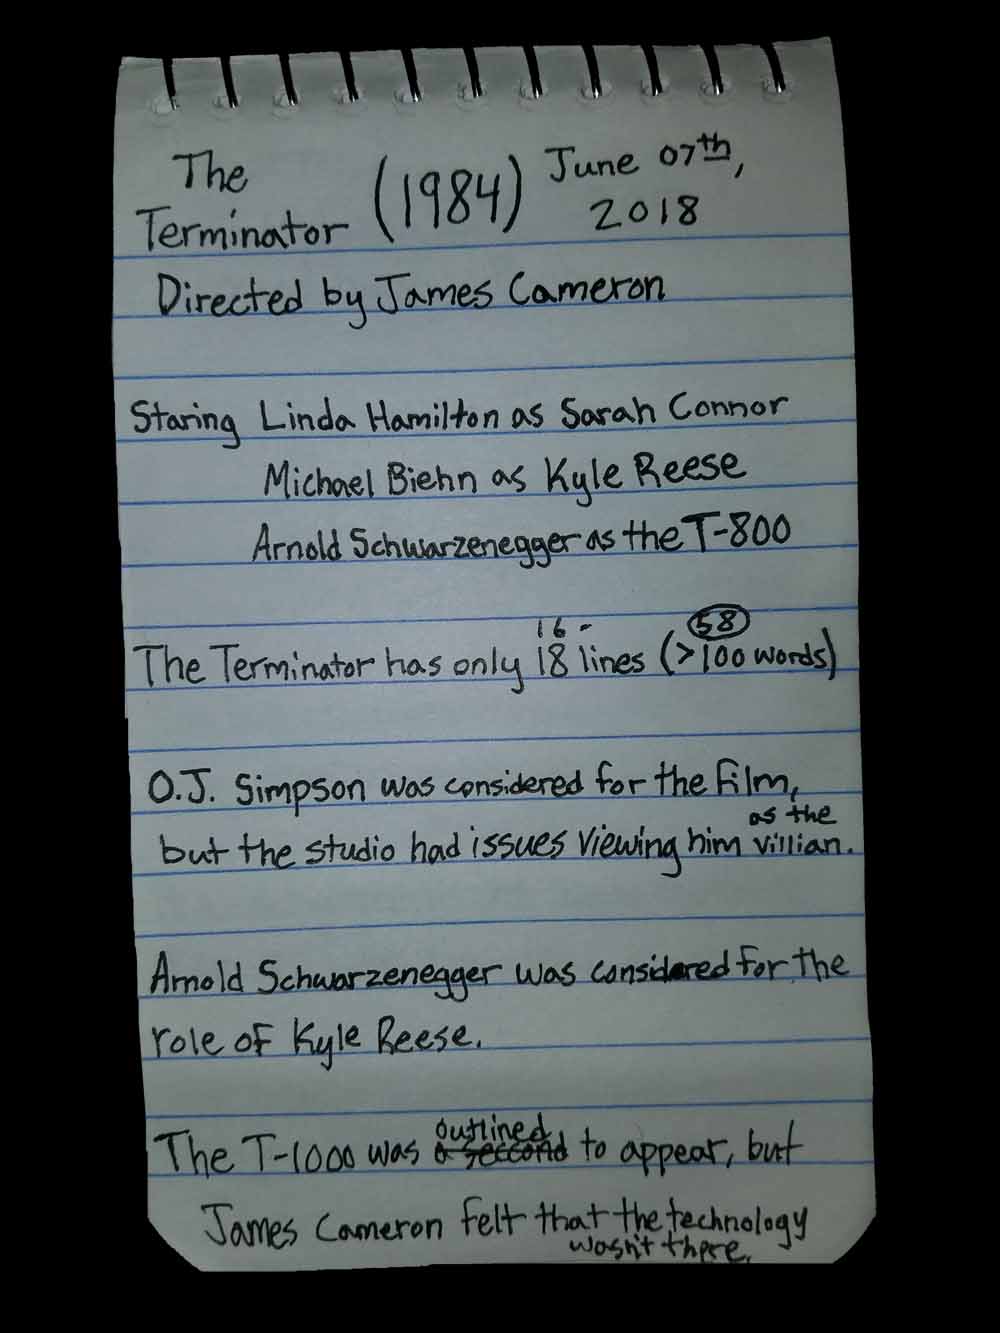 The June 07th,
Terminator (1984) 2018
Directed by James Cameron
Staring Linda Hamilton as Sarah Connor
Michael Biehn as Kyle Reese
Arnold Schwarzenegger as the T-800
16- 58
The Terminator has only 18 lines (>100 words)
O.J. Simpson was considered for the film,
as the
but the studio had issues viewing him villian.
Arnold Schwarzenegger was considered for the
role of Kyle Reese.
outlined
The T-1000 was a seccond to appear, but
James Cameron felt that the technology
wasn't there.